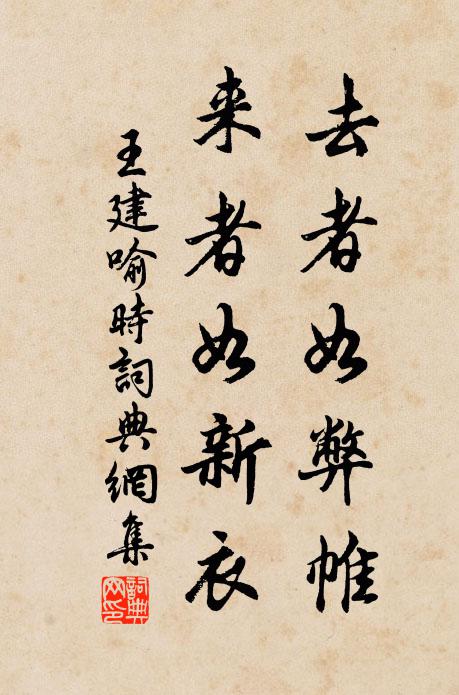 去者如弊帷
来者如新衣
王建喻時詞典網集
詞典網印